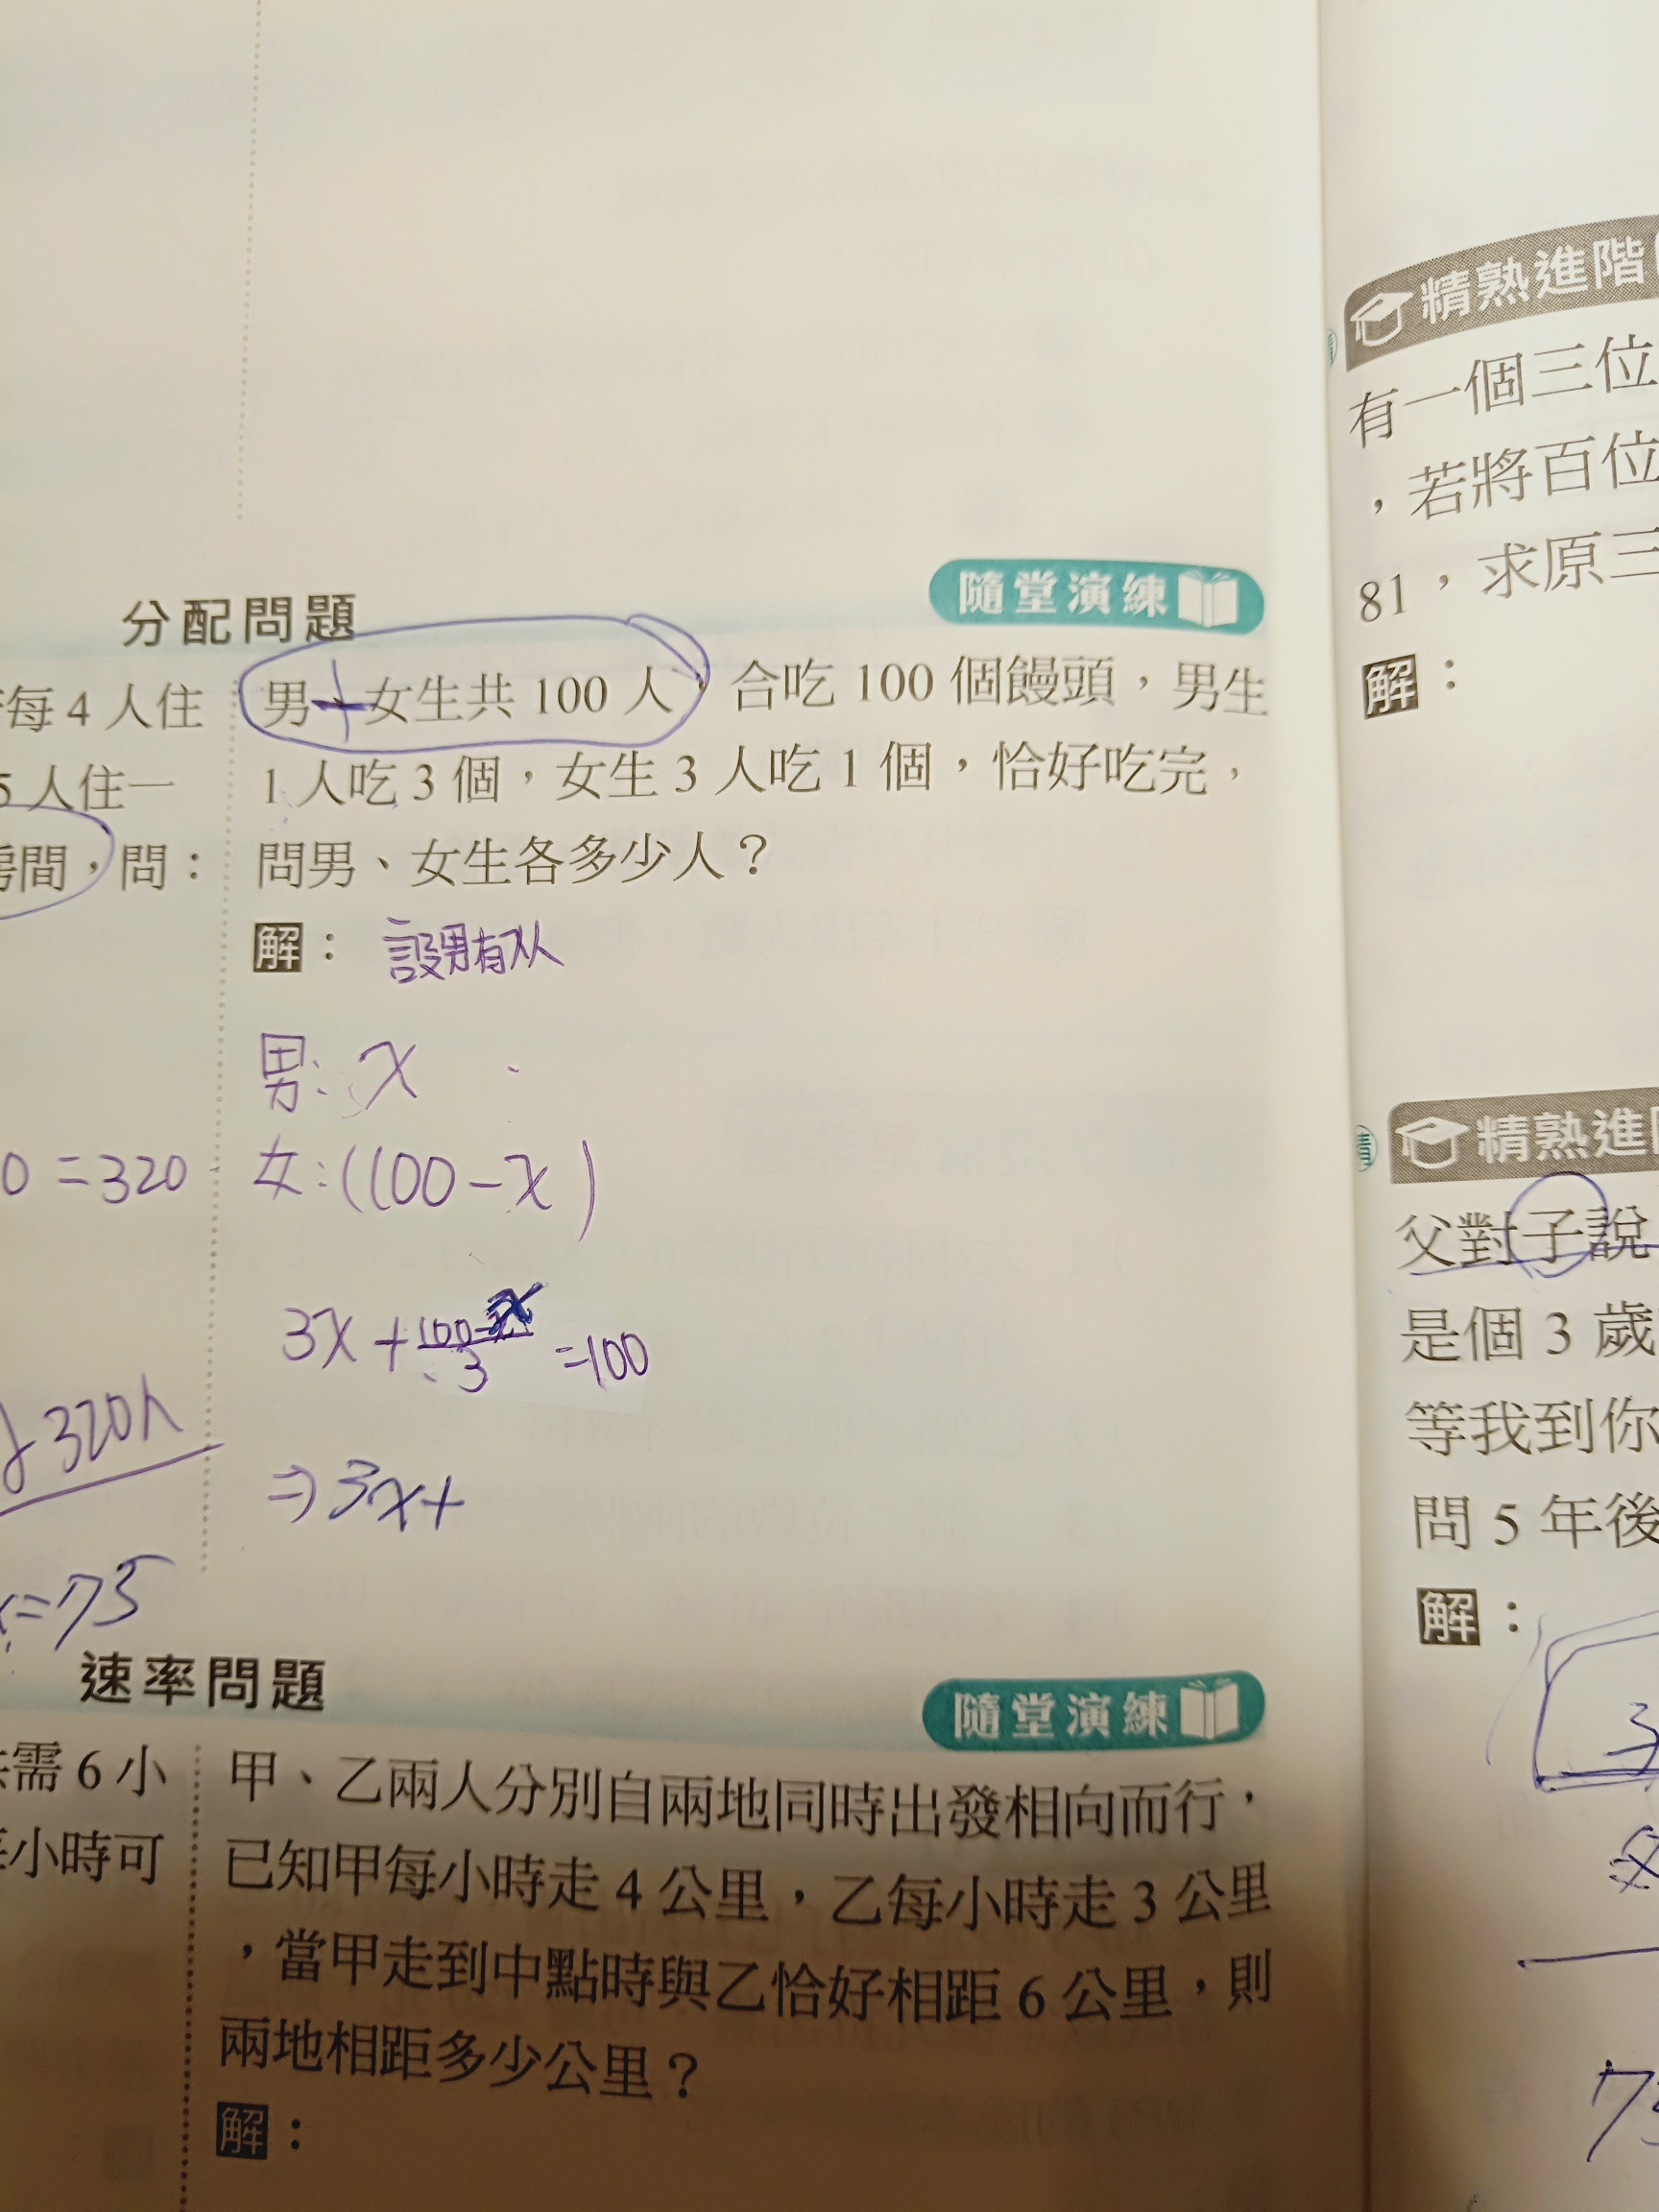 分配問題
隨堂演練
每 4 人住
5 人住一
房間，問：
0 = 320
320人
x = 75
男+女生共 100 人，合吃 100 個饅頭，男生
1 人吃 3 個，女生 3 人吃 1 個，恰好吃完，
問男、女生各多少人？
解： 設男有x人
男: x
女: (100 - x)
3x + (100-x)/3 = 100
⇒ 3x +
速率問題
隨堂演練
需 6 小
小時可
甲、乙兩人分別自兩地同時出發相向而行，
已知甲每小時走 4 公里，乙每小時走 3 公里
，當甲走到中點時與乙恰好相距 6 公里，則
兩地相距多少公里？
解：
精熟進階
有一個三位
，若將百位
81，求原三
解：
精熟進階
父對子說
是個 3 歲
等我到你
問 5 年後
解：